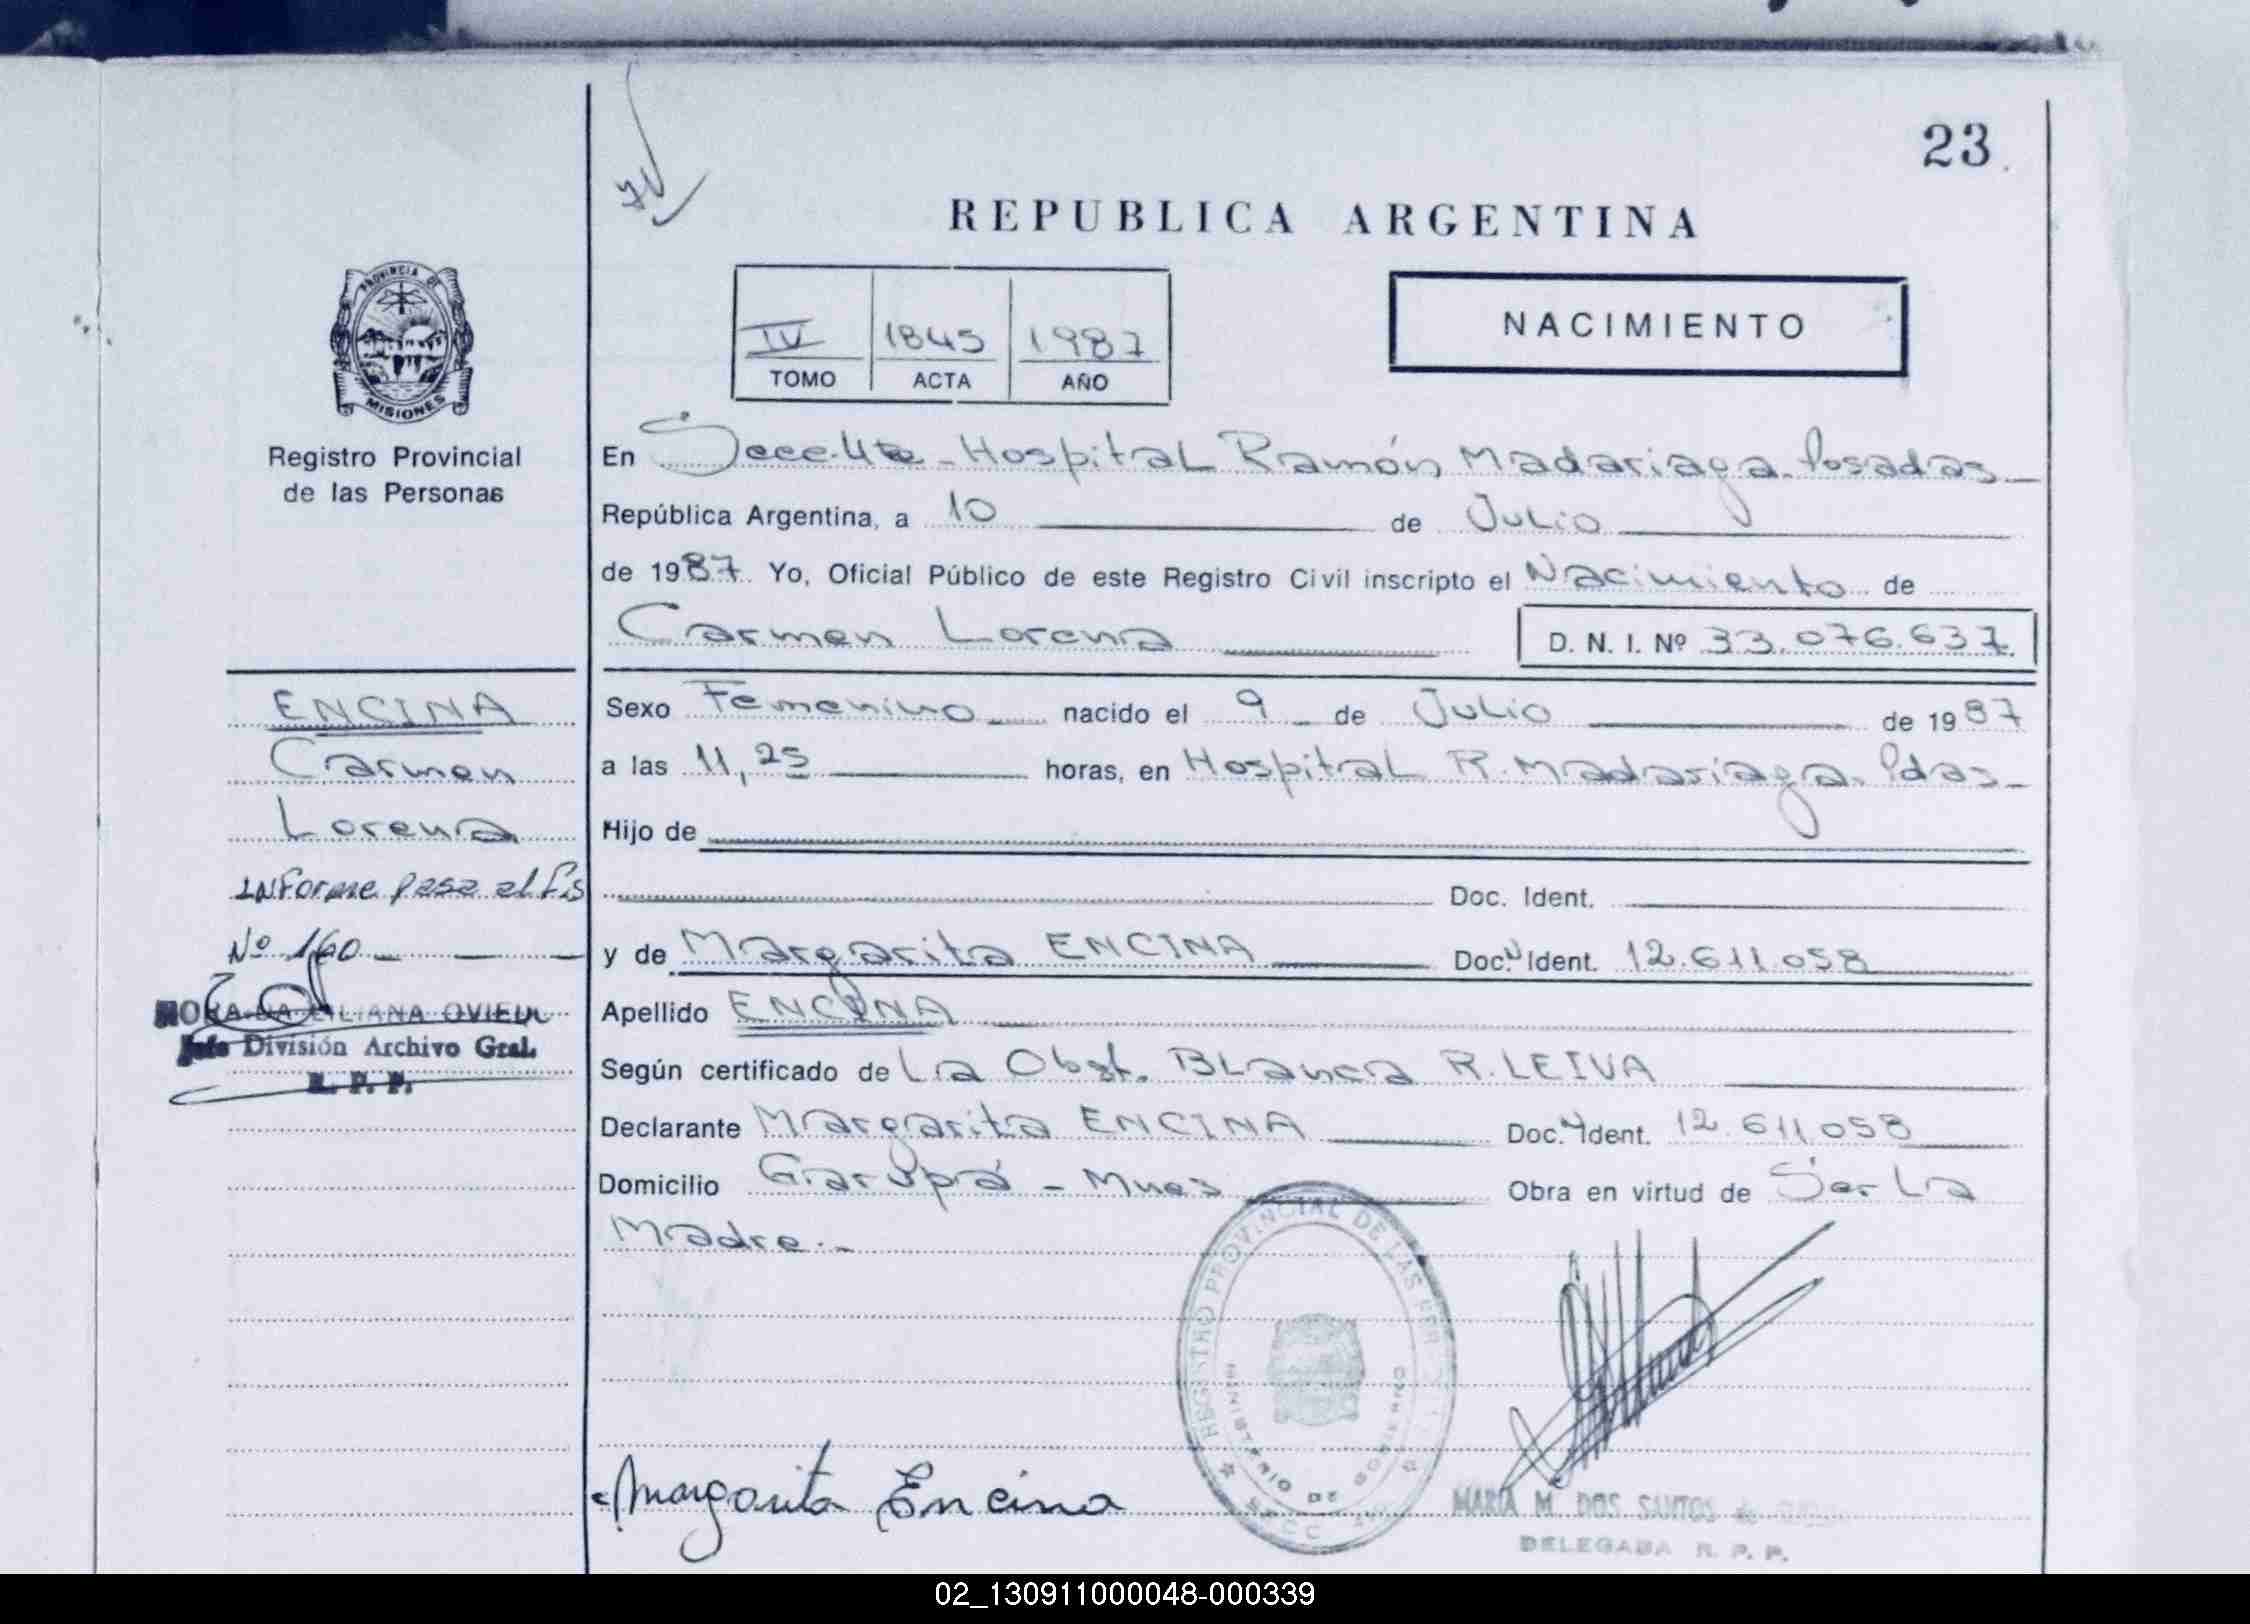 23
REPUBLICA ARGENTINA
PROVINCIA DE
MISIONES
Registro Provincial
de las Personas
IV 1845 1987
TOMO ACTA AÑO
NACIMIENTO
En Secc. 4ta - Hospital Ramón Madariaga - Posadas
República Argentina, a 10 de Julio
de 1987. Yo, Oficial Público de este Registro Civil inscripto el Nacimiento de
Carmen Lorena D. N. I. Nº 33.076.637
ENCINA
Carmen
Lorena
Informe pasa al fis
Nº 160
LILIANA OVIEDO
Jefe División Archivo Gral.
R. P. P.
Sexo Femenino nacido el 9 de Julio de 1987
a las 11,25 horas, en Hospital R. Madariaga. Pdas
Hijo de
Doc. Ident.
y de Margarita ENCINA Doc. Ident. 12.611.058
Apellido ENCINA
Según certificado de La Obst. Blanca R. LEIVA
Declarante Margarita ENCINA Doc. Ident. 12.611.058
Domicilio Garupá - Mnes Obra en virtud de Ser La
Madre.-
REGISTRO PROVINCIAL DE LAS PER
MINISTERIO DE GOBIERNO
SECC.
Margarita Encina
MARIA M. DOS SANTOS de
DELEGADA R. P. P.
02_130911000048-000339